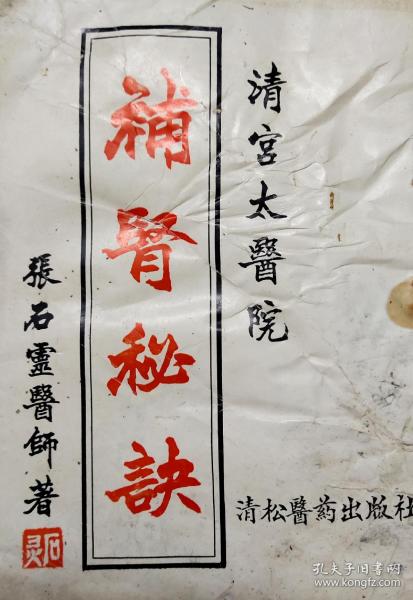 清宮太醫院
補腎秘訣
張石靈醫師著
石灵
清松醫药出版社
孔夫子旧书网
www.kongfz.com